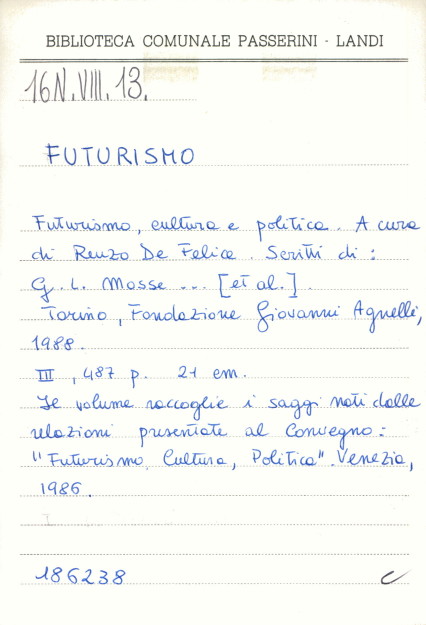 BIBLIOTECA COMUNALE PASSERINI - LANDI
16N.VIII.13.
FUTURISMO
Futurismo, cultura e politica. A cura
di Renzo De Felice. Scritti di:
G. L. Mosse ... [et al.].
Torino, Fondazione Giovanni Agnelli,
1988.
III, 487 p. 21 cm.
Il volume raccoglie i saggi nati dalle
relazioni presentate al Convegno:
"Futurismo, Cultura, Politica". Venezia,
1986.
186238